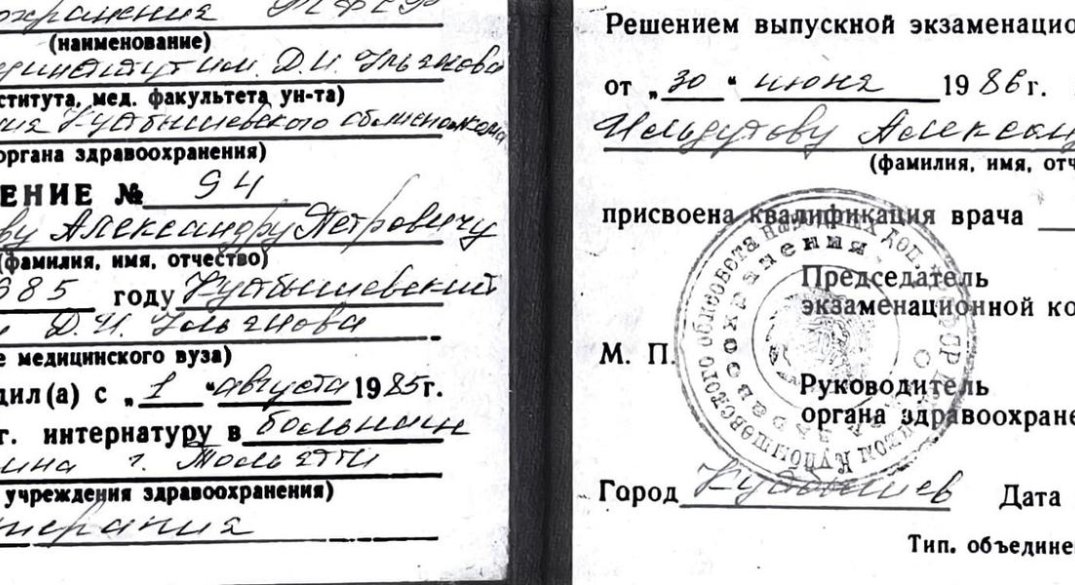 охранения РСФСР
(наименование)
мединститут им. Д.И. Ульянова
ститута, мед. факультета ун-та)
ия Куйбышевского облисполкома
органа здравоохранения)
ЕНИЕ № 94
ву Александру Петровичу
(фамилия, имя, отчество)
985 году Куйбышевский
и Д.И. Ульянова
е медицинского вуза)
дил(а) с „1" августа 1985г.
г. интернатуру в больнице
ина г. Тольятти
учреждения здравоохранения)
терапия
Решением выпускной экзаменацио
от „30" июня 1986г.
Александ
(фамилия, имя, отч
присвоена квалификация врача
Председатель
экзаменационной ко
М. П.
Руководитель
органа здравоохране
Город Куйбышев Дата
Тип. объедине